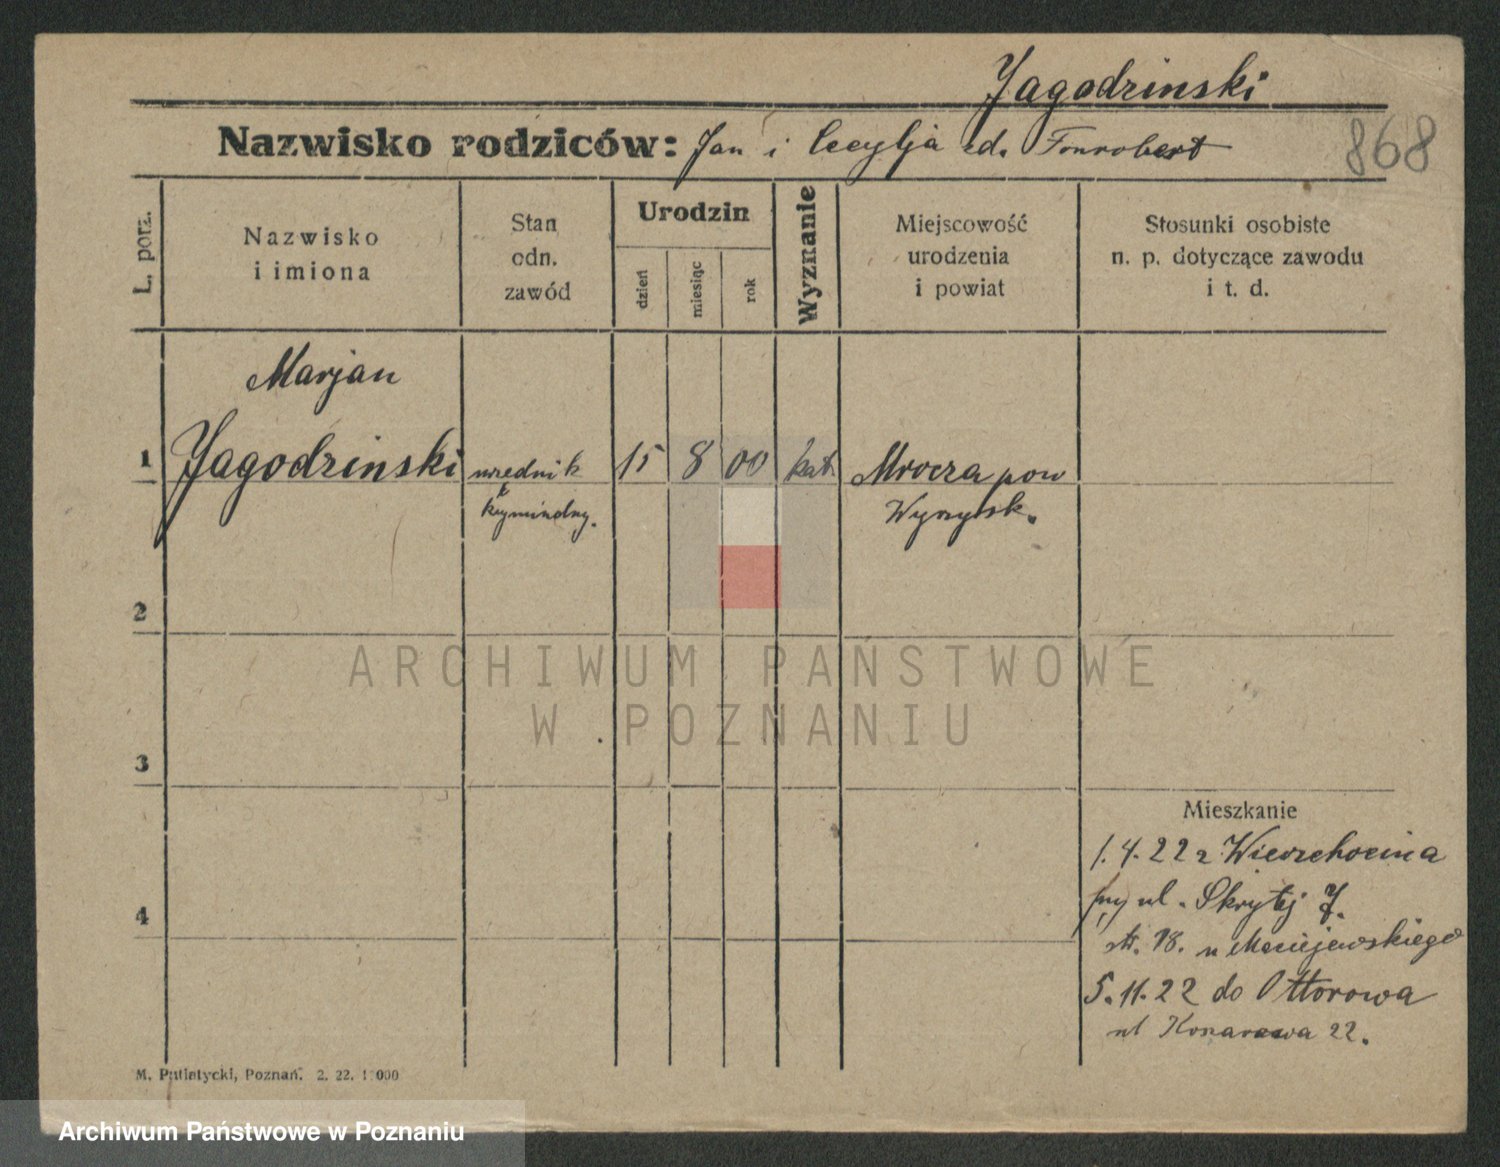 Jagodzinski
Nazwisko rodziców: Jan i Cecylja zd. Fonrobert
868
L. porz.
Nazwisko
i imiona
Stan
odn.
zawód
Urodzin
dzień
miesiąc
rok
Wyznanie
Miejscowość
urodzenia
i powiat
Stosunki osobiste
n. p. dotyczące zawodu
i t. d.
Marjan
1 Jagodzinski urzednik 15 8 00 kat. Mrocza pow
kryminalny. Wyrzysk.
2
ARCHIWUM PAŃSTWOWE
W POZNANIU
3
Mieszkanie
1.4.22 z Wierzchocina
przy ul. Skrytej 7.
str. 18. u Maciejewskiego
4
5.11.22 do Ottorowa
ul 22.
M. Putiatycki, Poznań. 2. 22. 1000
Archiwum Państwowe w Poznaniu